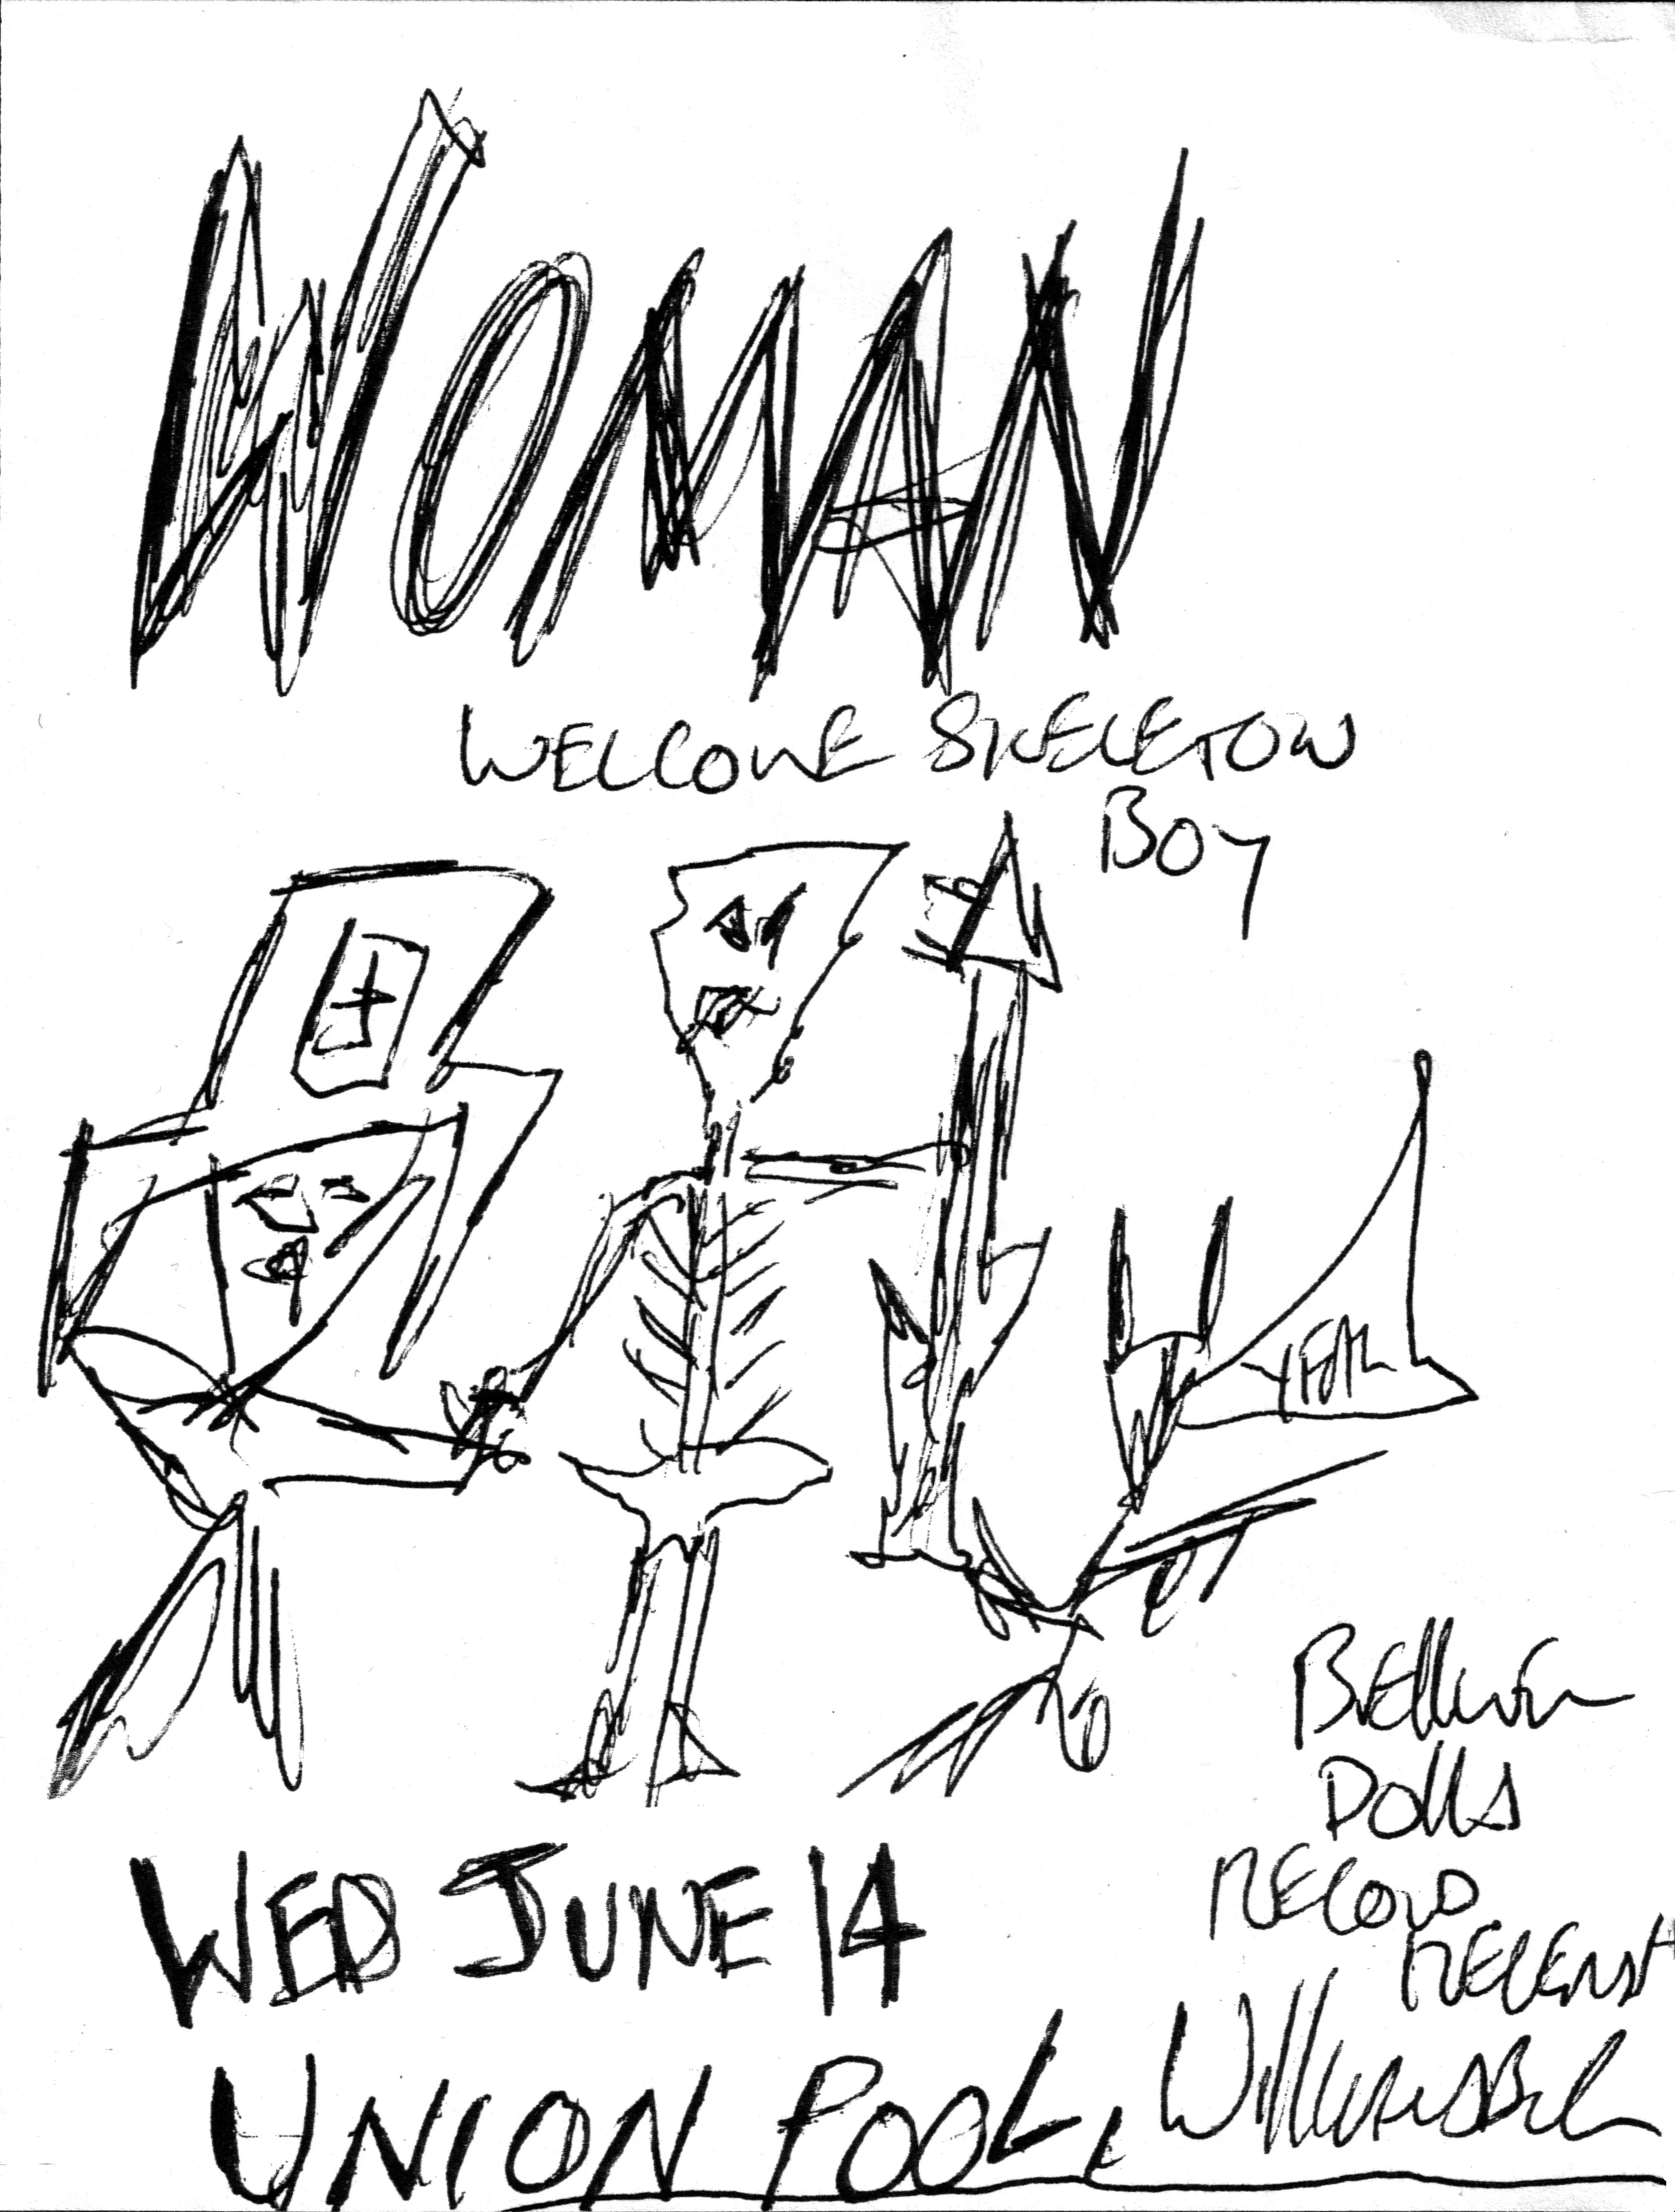 WOMAN
WELCOME SKELETON
BOY
BELLMER
DOLLS
RECORD
RELEASE
WED JUNE 14
UNION POOL, Williamsburg